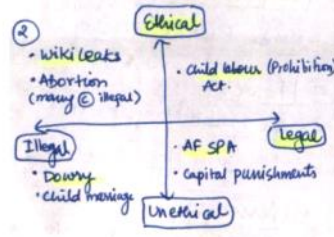 ②
Ethical
• Wikileaks
• Abortion
(many © illegal)
• Child labour (Prohibition)
Act.
Illegal
Legal
• Dowry
• Child marriage
• AFSPA
• Capital punishments
Unethical